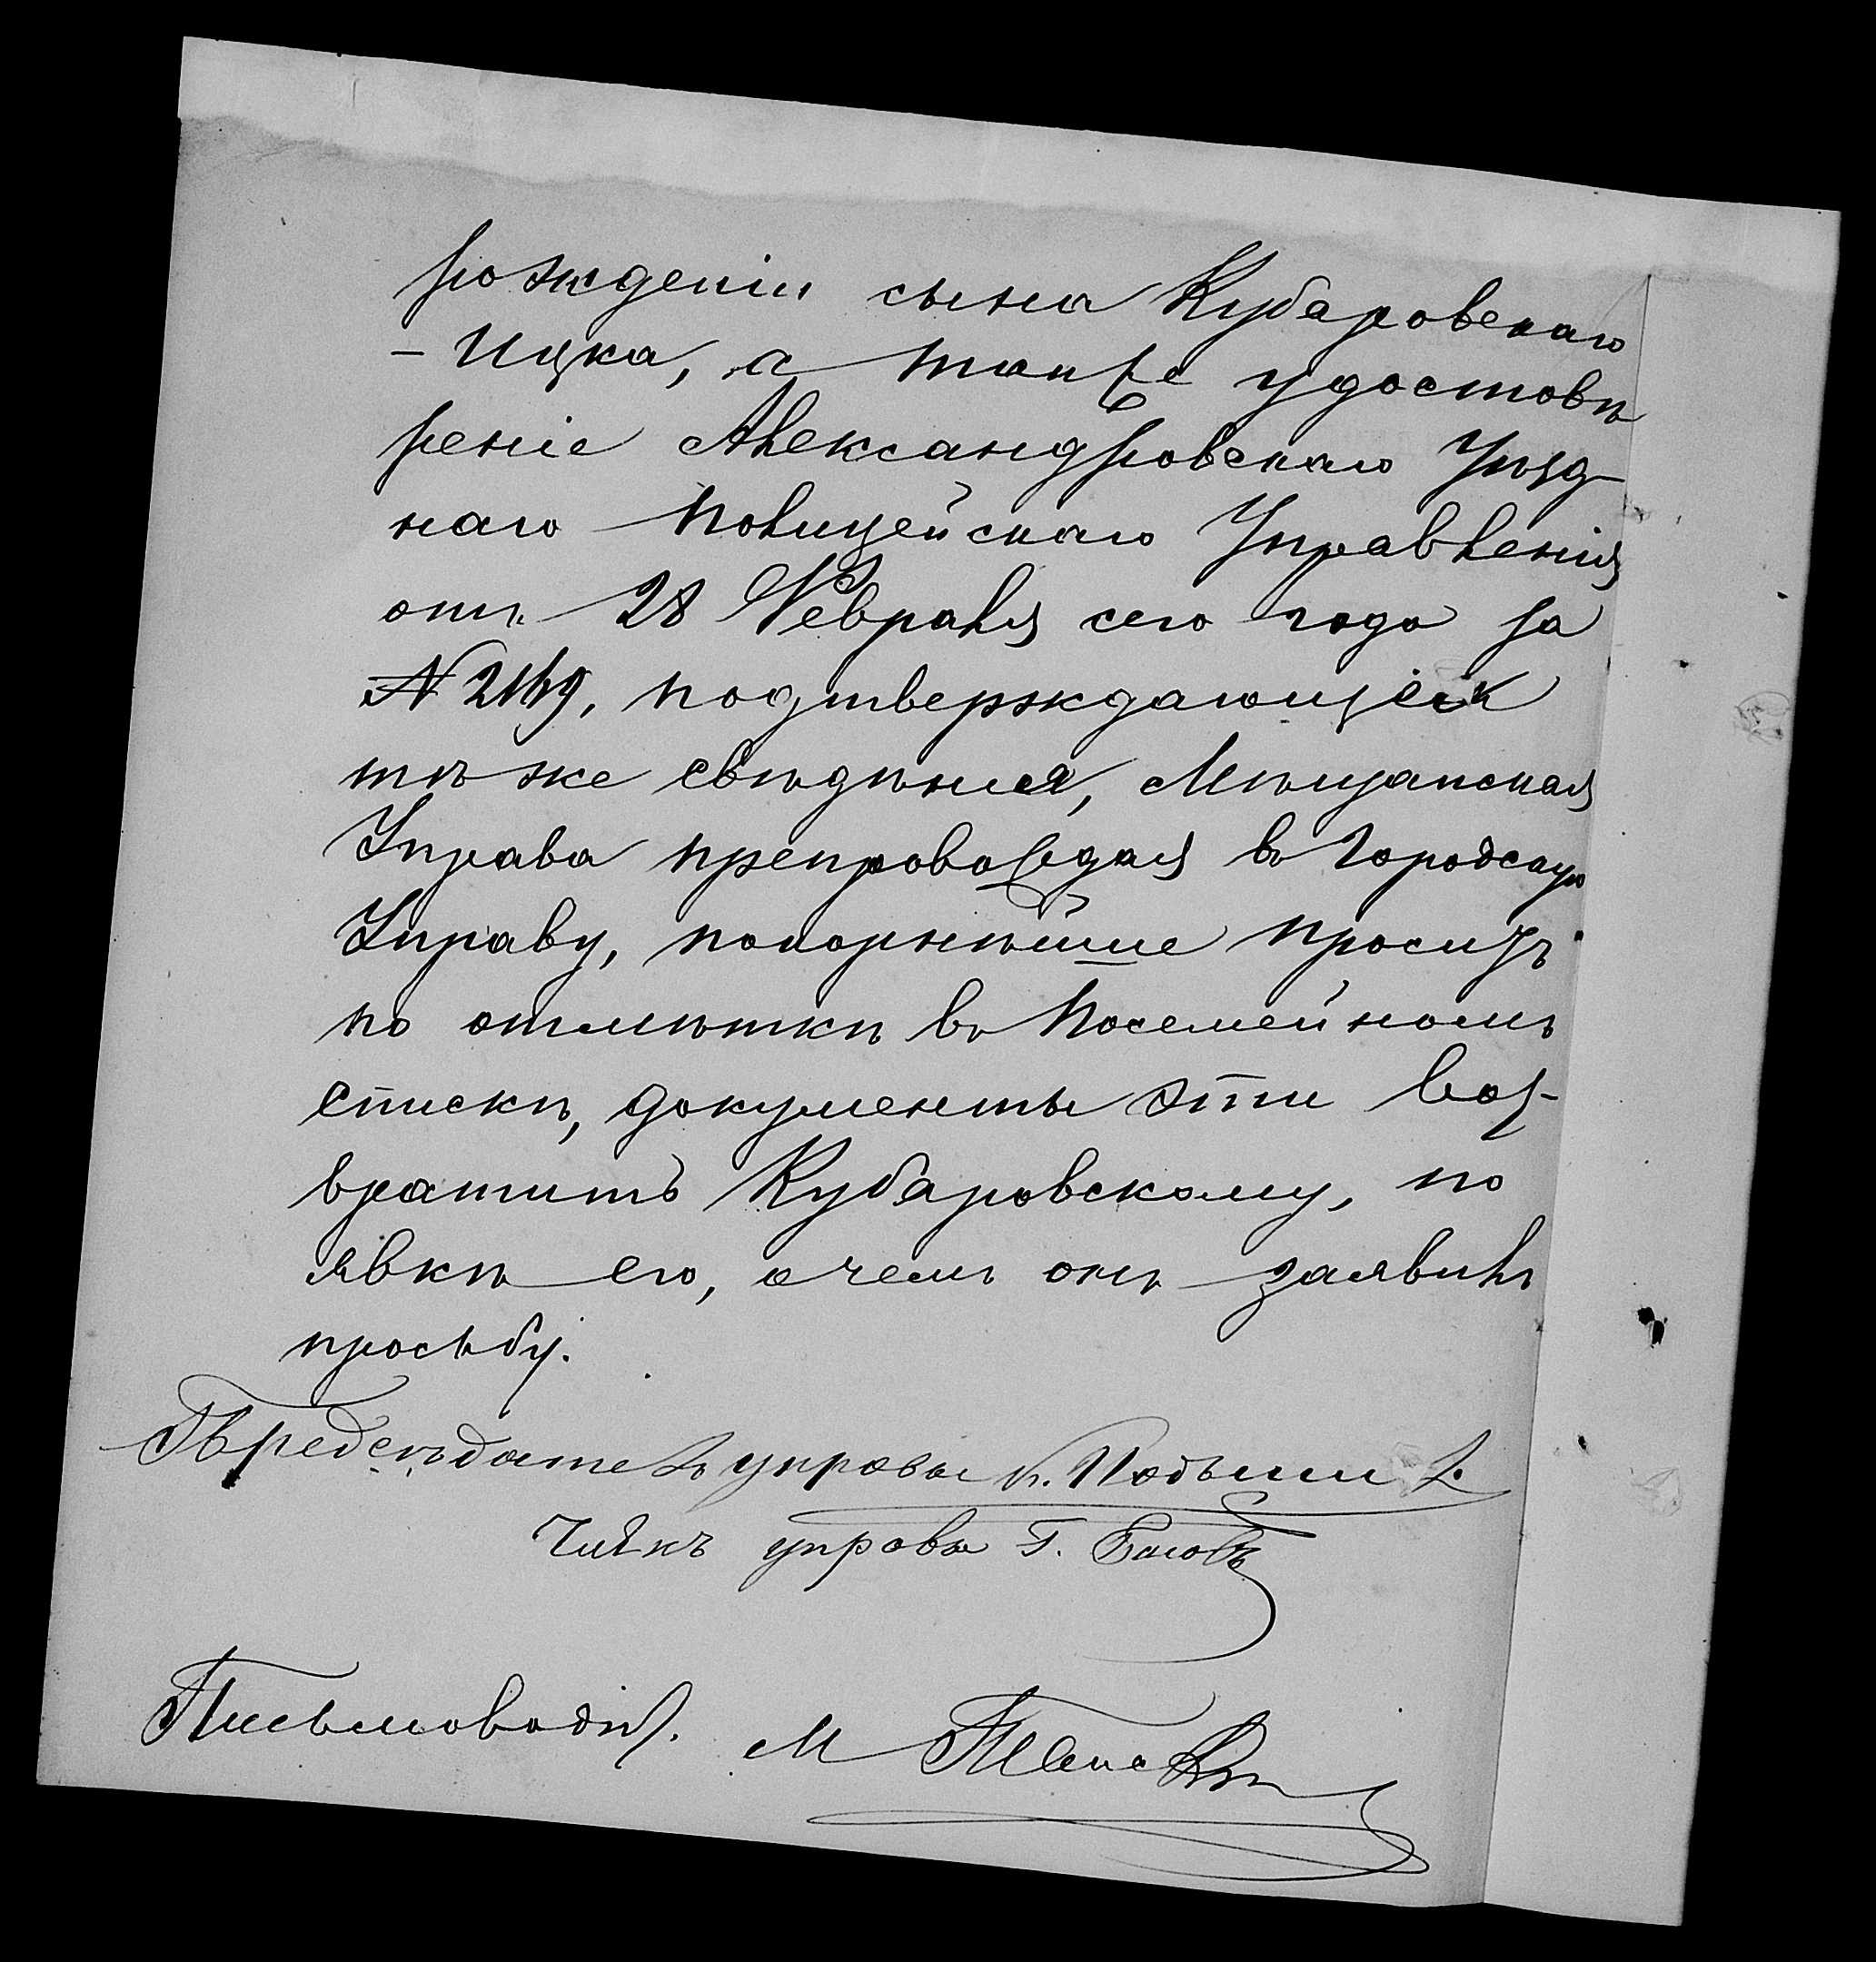 рожденіи сына Кубаровскаго
- Ицка, а также удостовѣ
реніе Александровскаго Уѣзд-
наго Полицейскаго Управленія
отъ 28 Февраля сего года за
№ 2169, подтверждающія
тѣ же свѣдѣнія, Мѣщанская
Управа препровождая въ Городскую
Управу, покорнѣйше проситъ
по отмѣткѣ въ Посемейномъ
спискѣ, документы эти воз-
вратить Кубаровскому, по
явкѣ его, о чемъ онъ заявилъ
просьбу.
Предсѣдатель управы
Члѣнъ управы Г.
Письмоводит. М